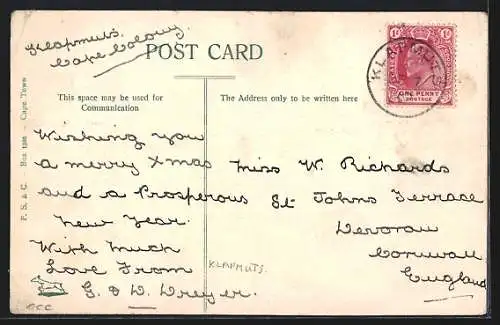 Klapmuts.
Cape Colony
POST CARD
1d 1d
ONE PENNY
POSTAGE
KLAPMUTS
This space may be used for
Communication
The Address only to be written here
P. S. & C. Box 1200 - Cape Town
Wishing you
a merry Xmas
and a Prosperous
New Year.
With much
Love From
G. & D. Dreyer.
Miss W. Richards
St Johns Terrace
Devoran
Cornwall
England
KLAPMUTS.